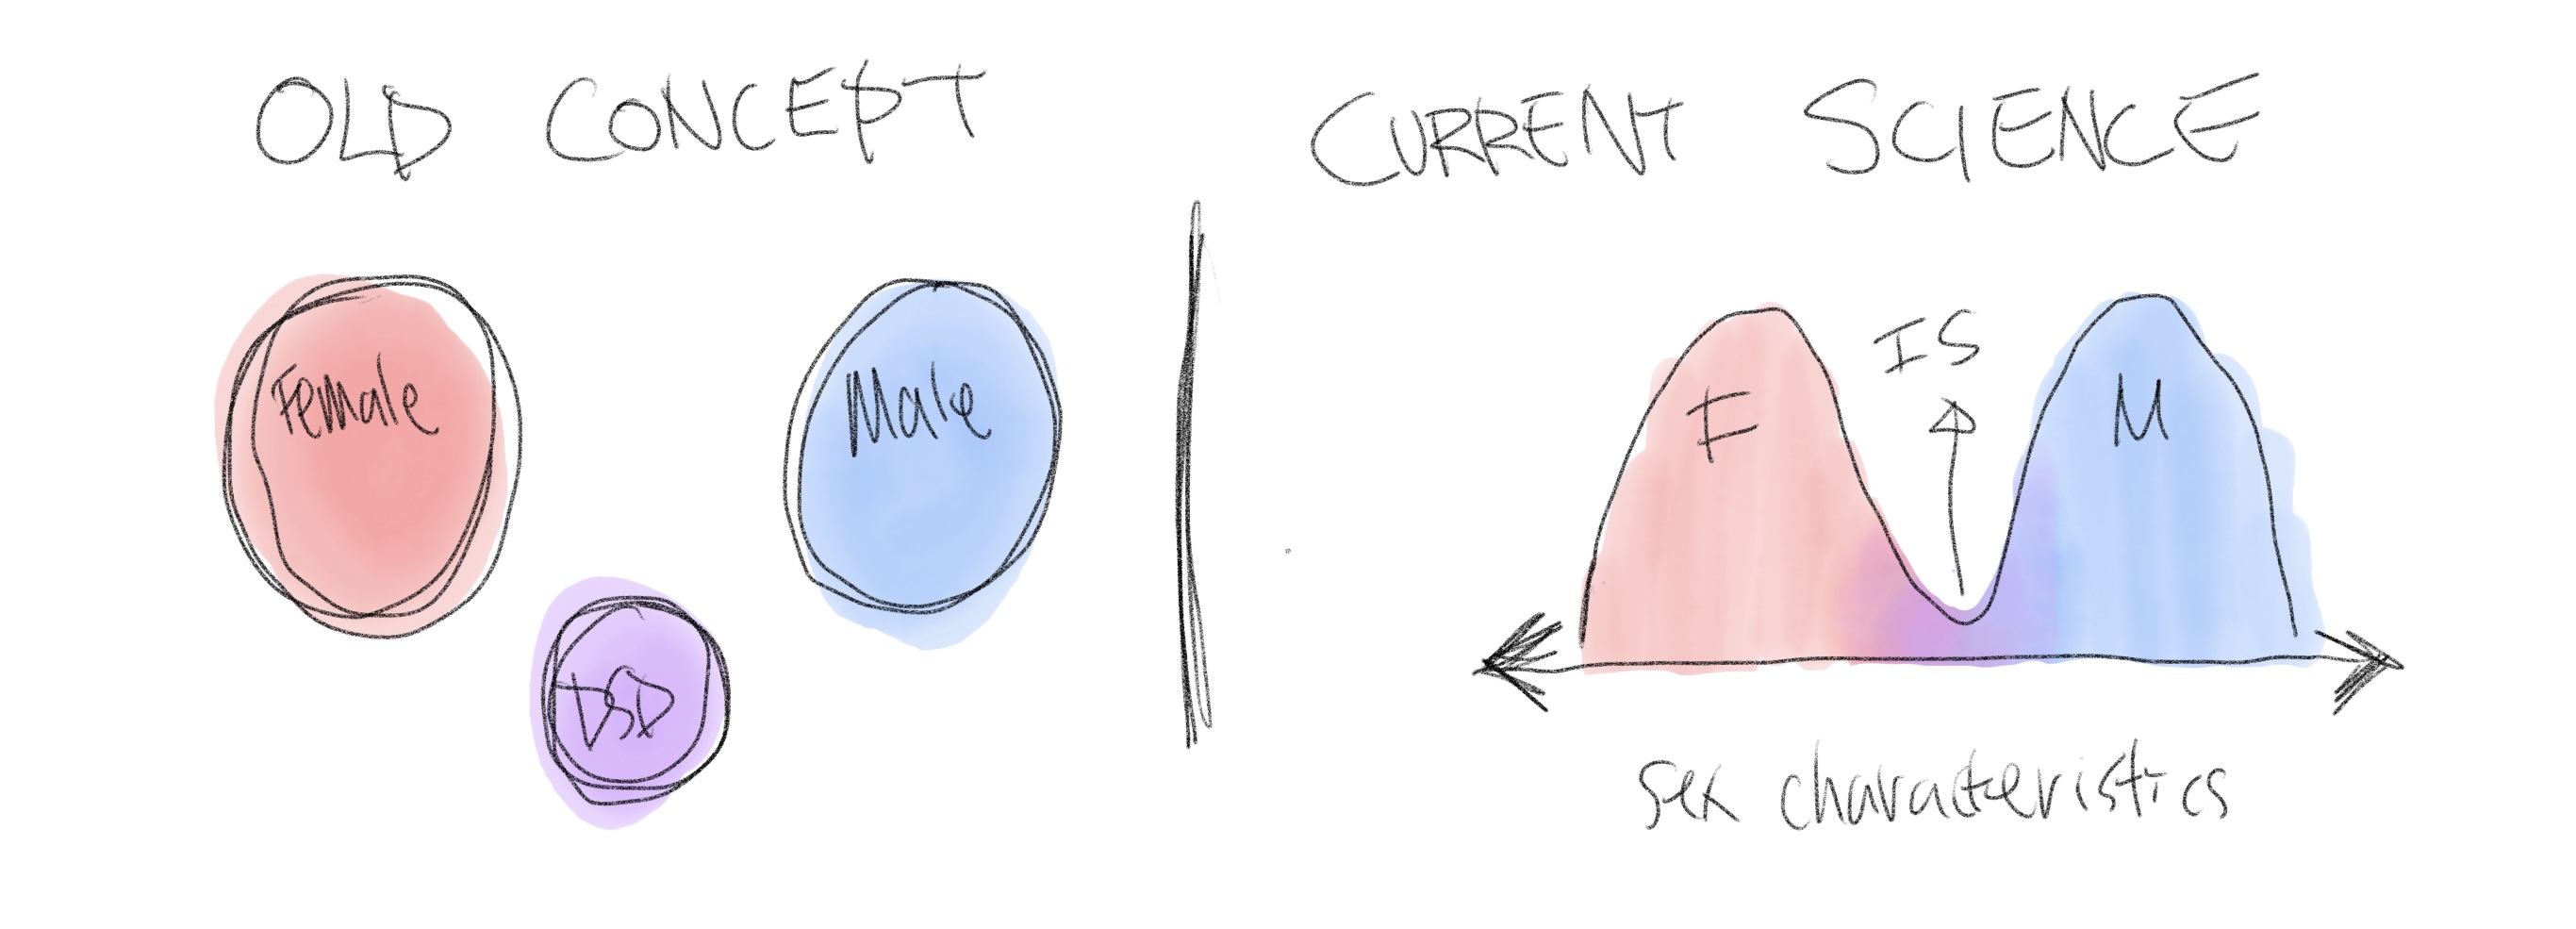 OLD CONCEPT
Female
Male
DSD
CURRENT SCIENCE
F
IS
M
sex characteristics